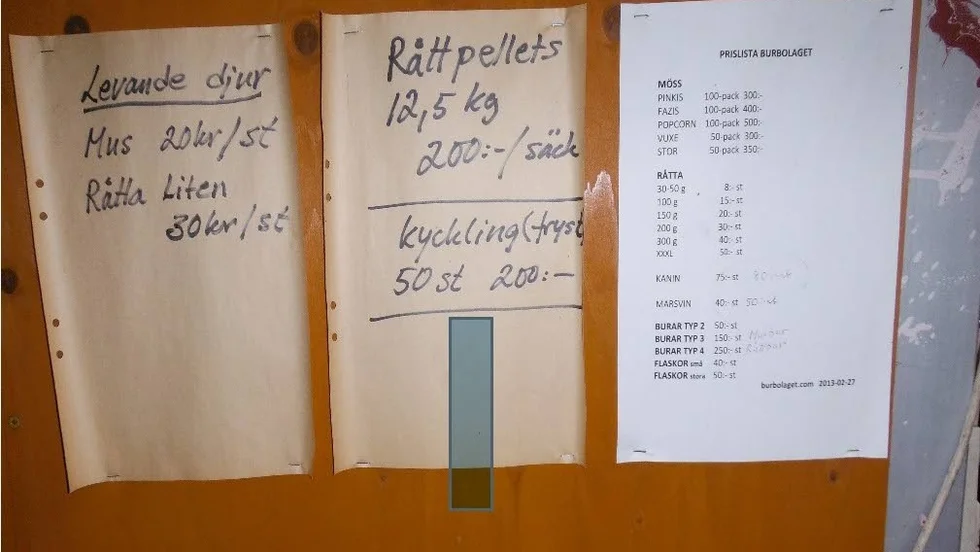 Levande djur
Mus 20kr/st
Råtta Liten
30kr/st
Råttpellets
12,5 kg
200:-/säck
kyckling(fryst
50 st 200:-
PRISLISTA BURBOLAGET
MÖSS
PINKIS 100-pack 300:-
FAZIS 100-pack 400:-
POPCORN 100-pack 500:-
VUXE 50-pack 300:-
STOR 50-pack 350:-
RÅTTA
30-50 g 8:- st
100 g 15:- st
150 g 20:- st
200 g 30:- st
300 g 40:- st
XXXL 50:- st
KANIN 75:- st
MARSVIN 40:- st 50:- st
BURAR TYP 2 50:- st
BURAR TYP 3 150:- st
BURAR TYP 4 250:- st
FLASKOR små 40:- st
FLASKOR stora 50:- st
burbolaget.com 2013-02-27